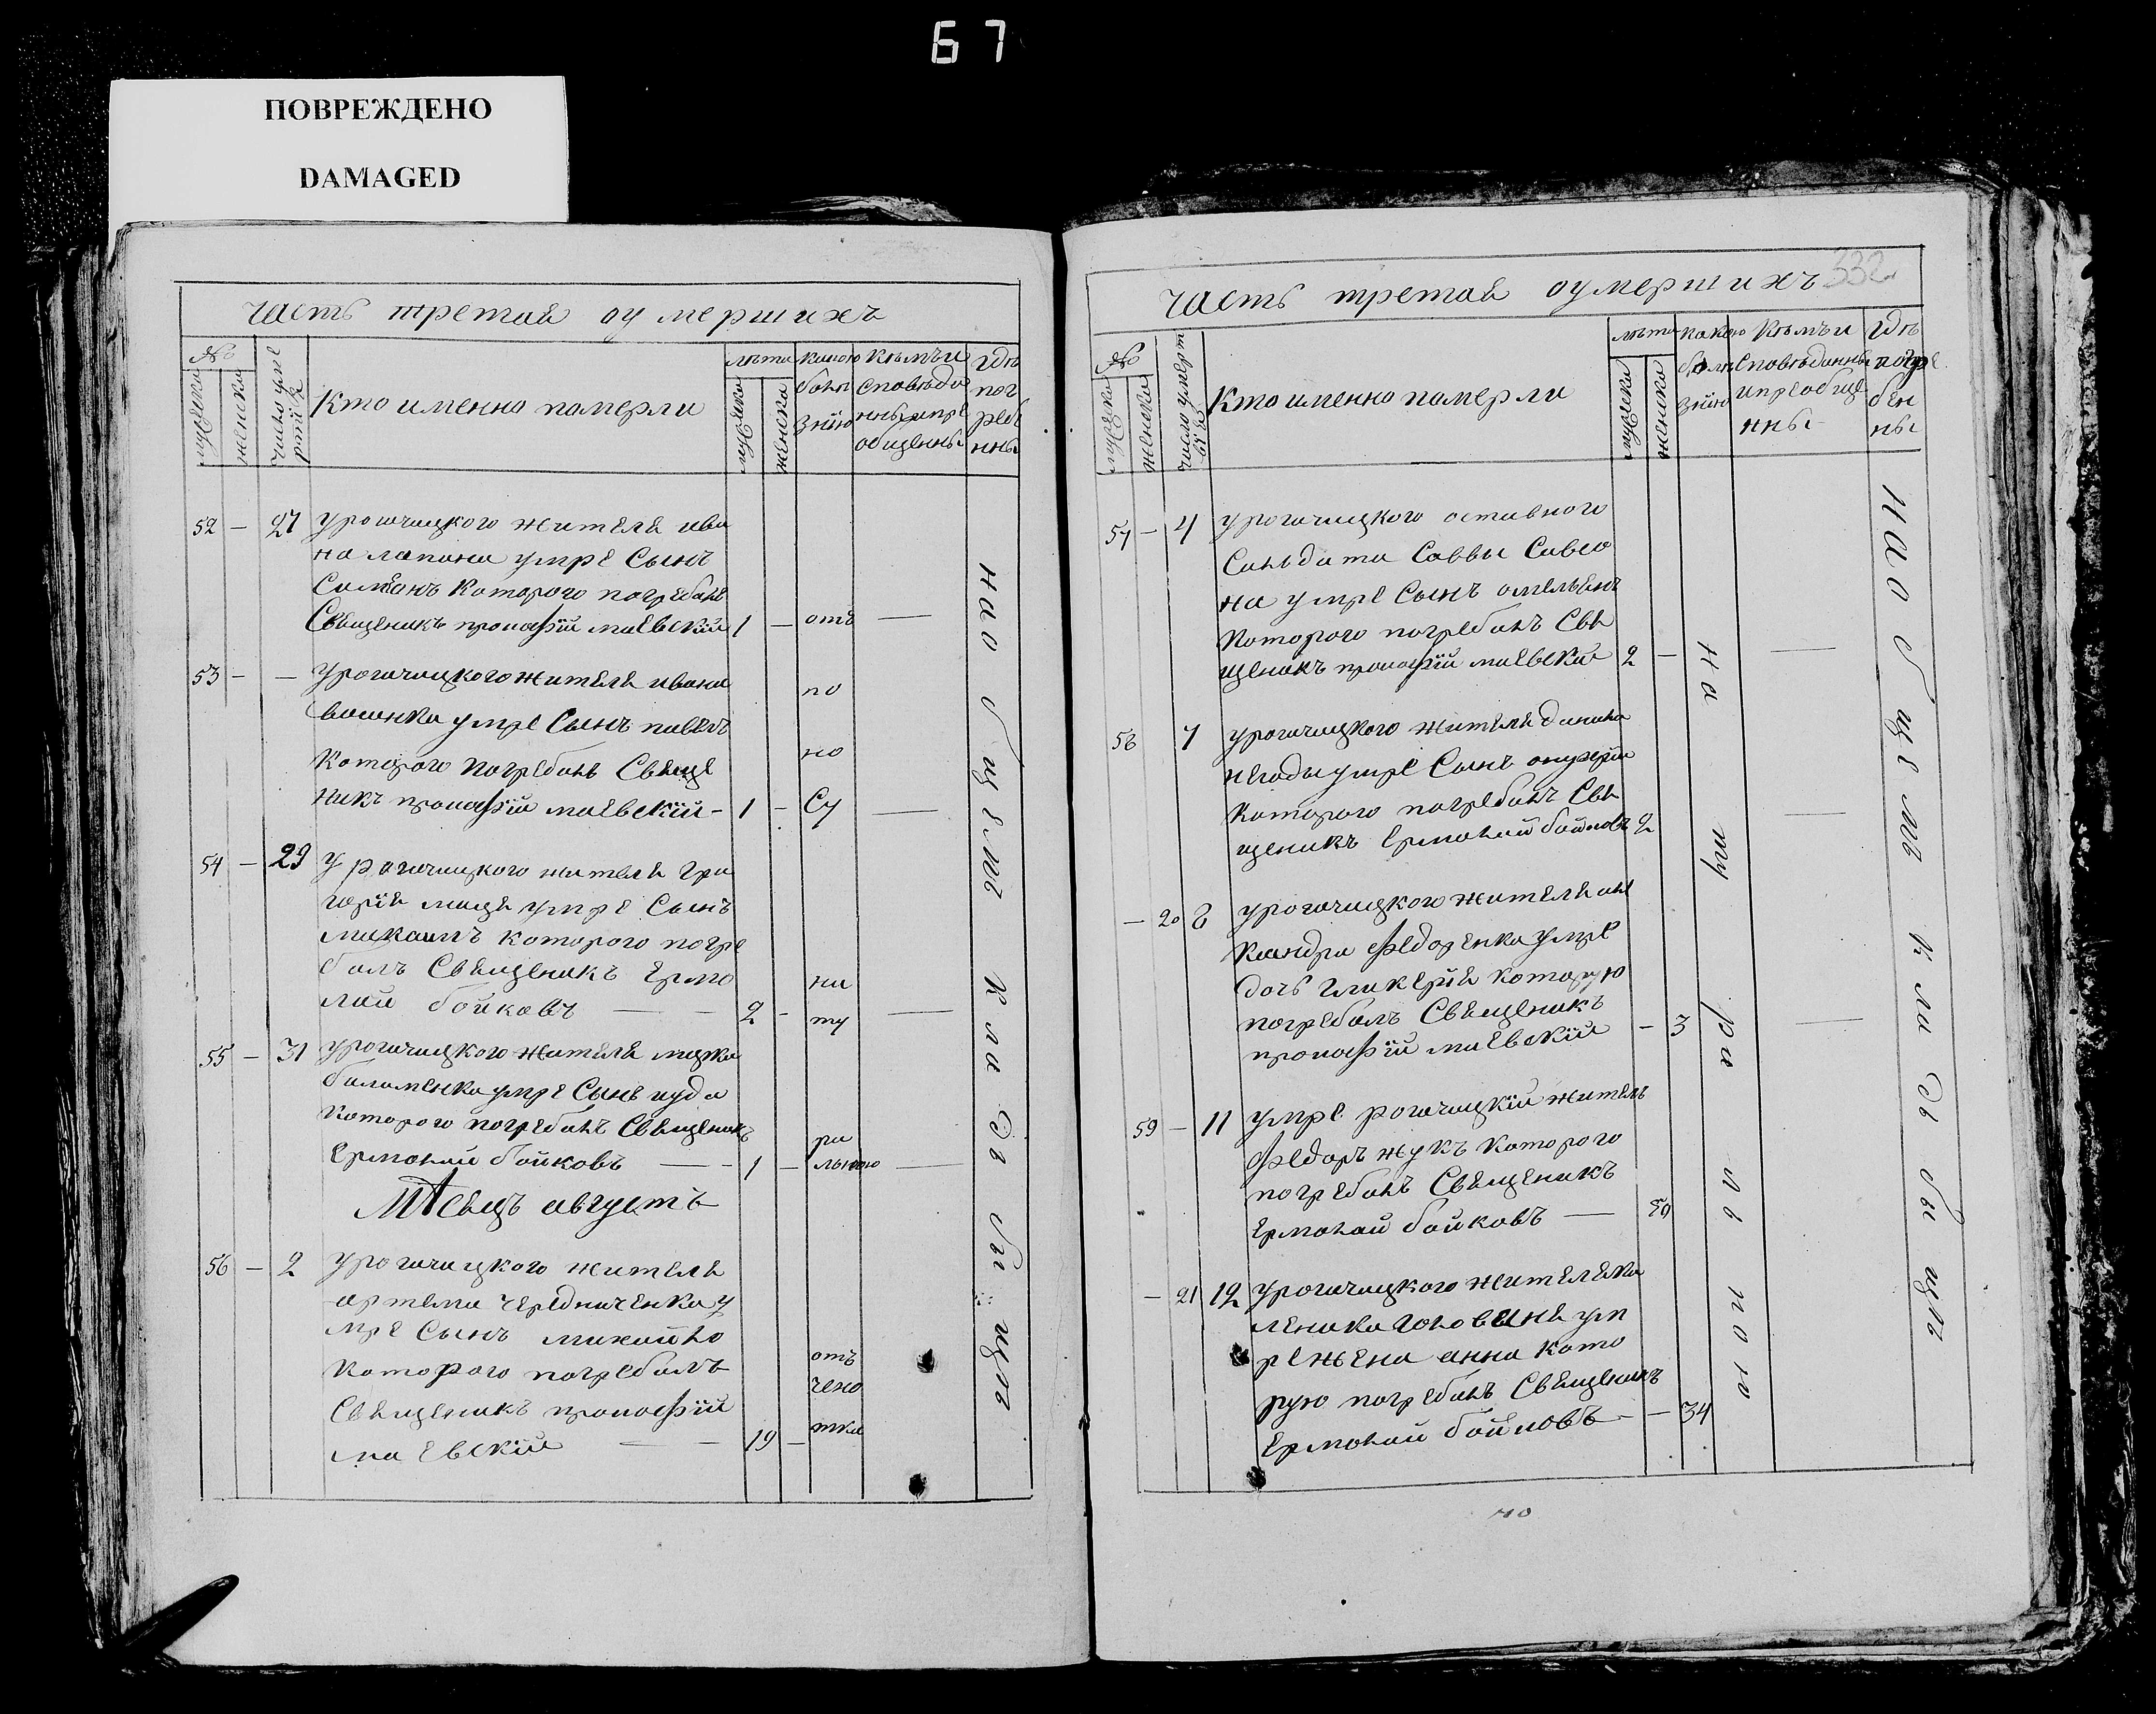 67
ПОВРЕЖДЕНО
DAMAGED
часть третая оумершихъ
№
мужеска
женска
число уме
ртїй
Кто именно померли
лѣта
мужеска
женска
какою
болѣ
знїю
Кѣмъ и
споведа
нны и пре
общенны
гдѣ
пог
ребе
нны
52 — 27 у рогачицкого жителя ива
на лапана умре Сынъ
Симеонъ Которого погребалъ
Священикъ прокофїй маевскїй 1 — отъ —
53 — — у рогачицкого жителя ивана
умре Сынъ павелъ
Которого погребалъ Свяще
никъ прокофїй маевскїй — 1 — —
по
но
Су
54 — 29 у рогачицкого жителя гри
горїя маця умре Сынъ
михаилъ которого погре
балъ Священикъ Ермо
лай бойковъ — — 2 — —
на
ту
55 — 31 у рогачицкого жителя
умре Сынъ иуда
которого погребалъ Священикъ
Ермолай бойковъ — — 1 — —
ра
льною
Мѣсяцъ августъ
56 — 2 у рогачицкого жителя
артема чередниченка у
мре Сынъ михайло
которого погребалъ
Священикъ прокофїй
маевскїй — — 19 —
отъ
чехо
тки
на общемъ кладьбищѣ
332
часть третая оумершихъ
№
мужеска
женска
число умерт
Кто именно померли
лѣта
мужеска
женска
какою
болѣ
знїю
Кѣмъ и
споведанны
и преобще
нны
гдѣ
погре
бен
ны
57 — 4 у рогачицкого оставного
Сальдата Саввы Савео
на умре Сынъ омельянъ
Которого погребалъ Свя
щеникъ прокофїй маевскїй 2 — —
58 7 у рогачицкого жителя данила
негоды умре Сынъ онуфрїй
Которого погребалъ Свя
щеникъ Ермолай бойковъ 2 —
— 20 8 у рогачицкого жителя але
Ксандра Федоренка умре
дочь гликерїя которую
погребалъ Священикъ
прокофїй маевскїй — 3 —
59 — 11 умре рогачицкїй житель
Федоръ жукъ которого
погребалъ Священикъ
Ермолай бойковъ — 59
— 21 12 у рогачицкого жителя
головани ум
ре жена анна кото
рую погребалъ Священикъ
Ермолай бойковъ — — 34
на ту ра ль ною
на общемъ кладьбищѣ